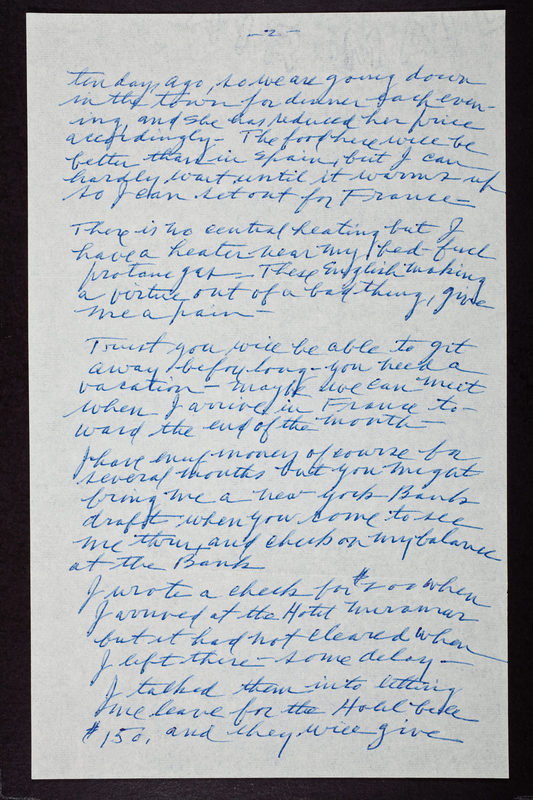 -2-
ten days ago, so we are going down
in the town for dinner each even-
ing, and she has reduced her price
accordingly - The food here will be
better than in Spain, but I can
hardly wait until it warms up
so I can set out for France -
There is no central heating but I
have a heater near my bed - fuel
protane gas - These English making
a virtue out of a bad thing, give
me a pain -
Trust you will be able to get
away before long - you need a
vacation - maybe we can meet
when I arrive in France to-
ward the end of the month -
I have enuf money of course for
several months but you might
bring me a new york Bank
draft when you come to see
me then, and check on my balance
at the Bank
I wrote a check for $200 when
I arrived at the Hotel Miramar
but it had not cleared when
I left there - some delay -
I talked them into letting
me leave for the Hotel bill
$150, and they will give